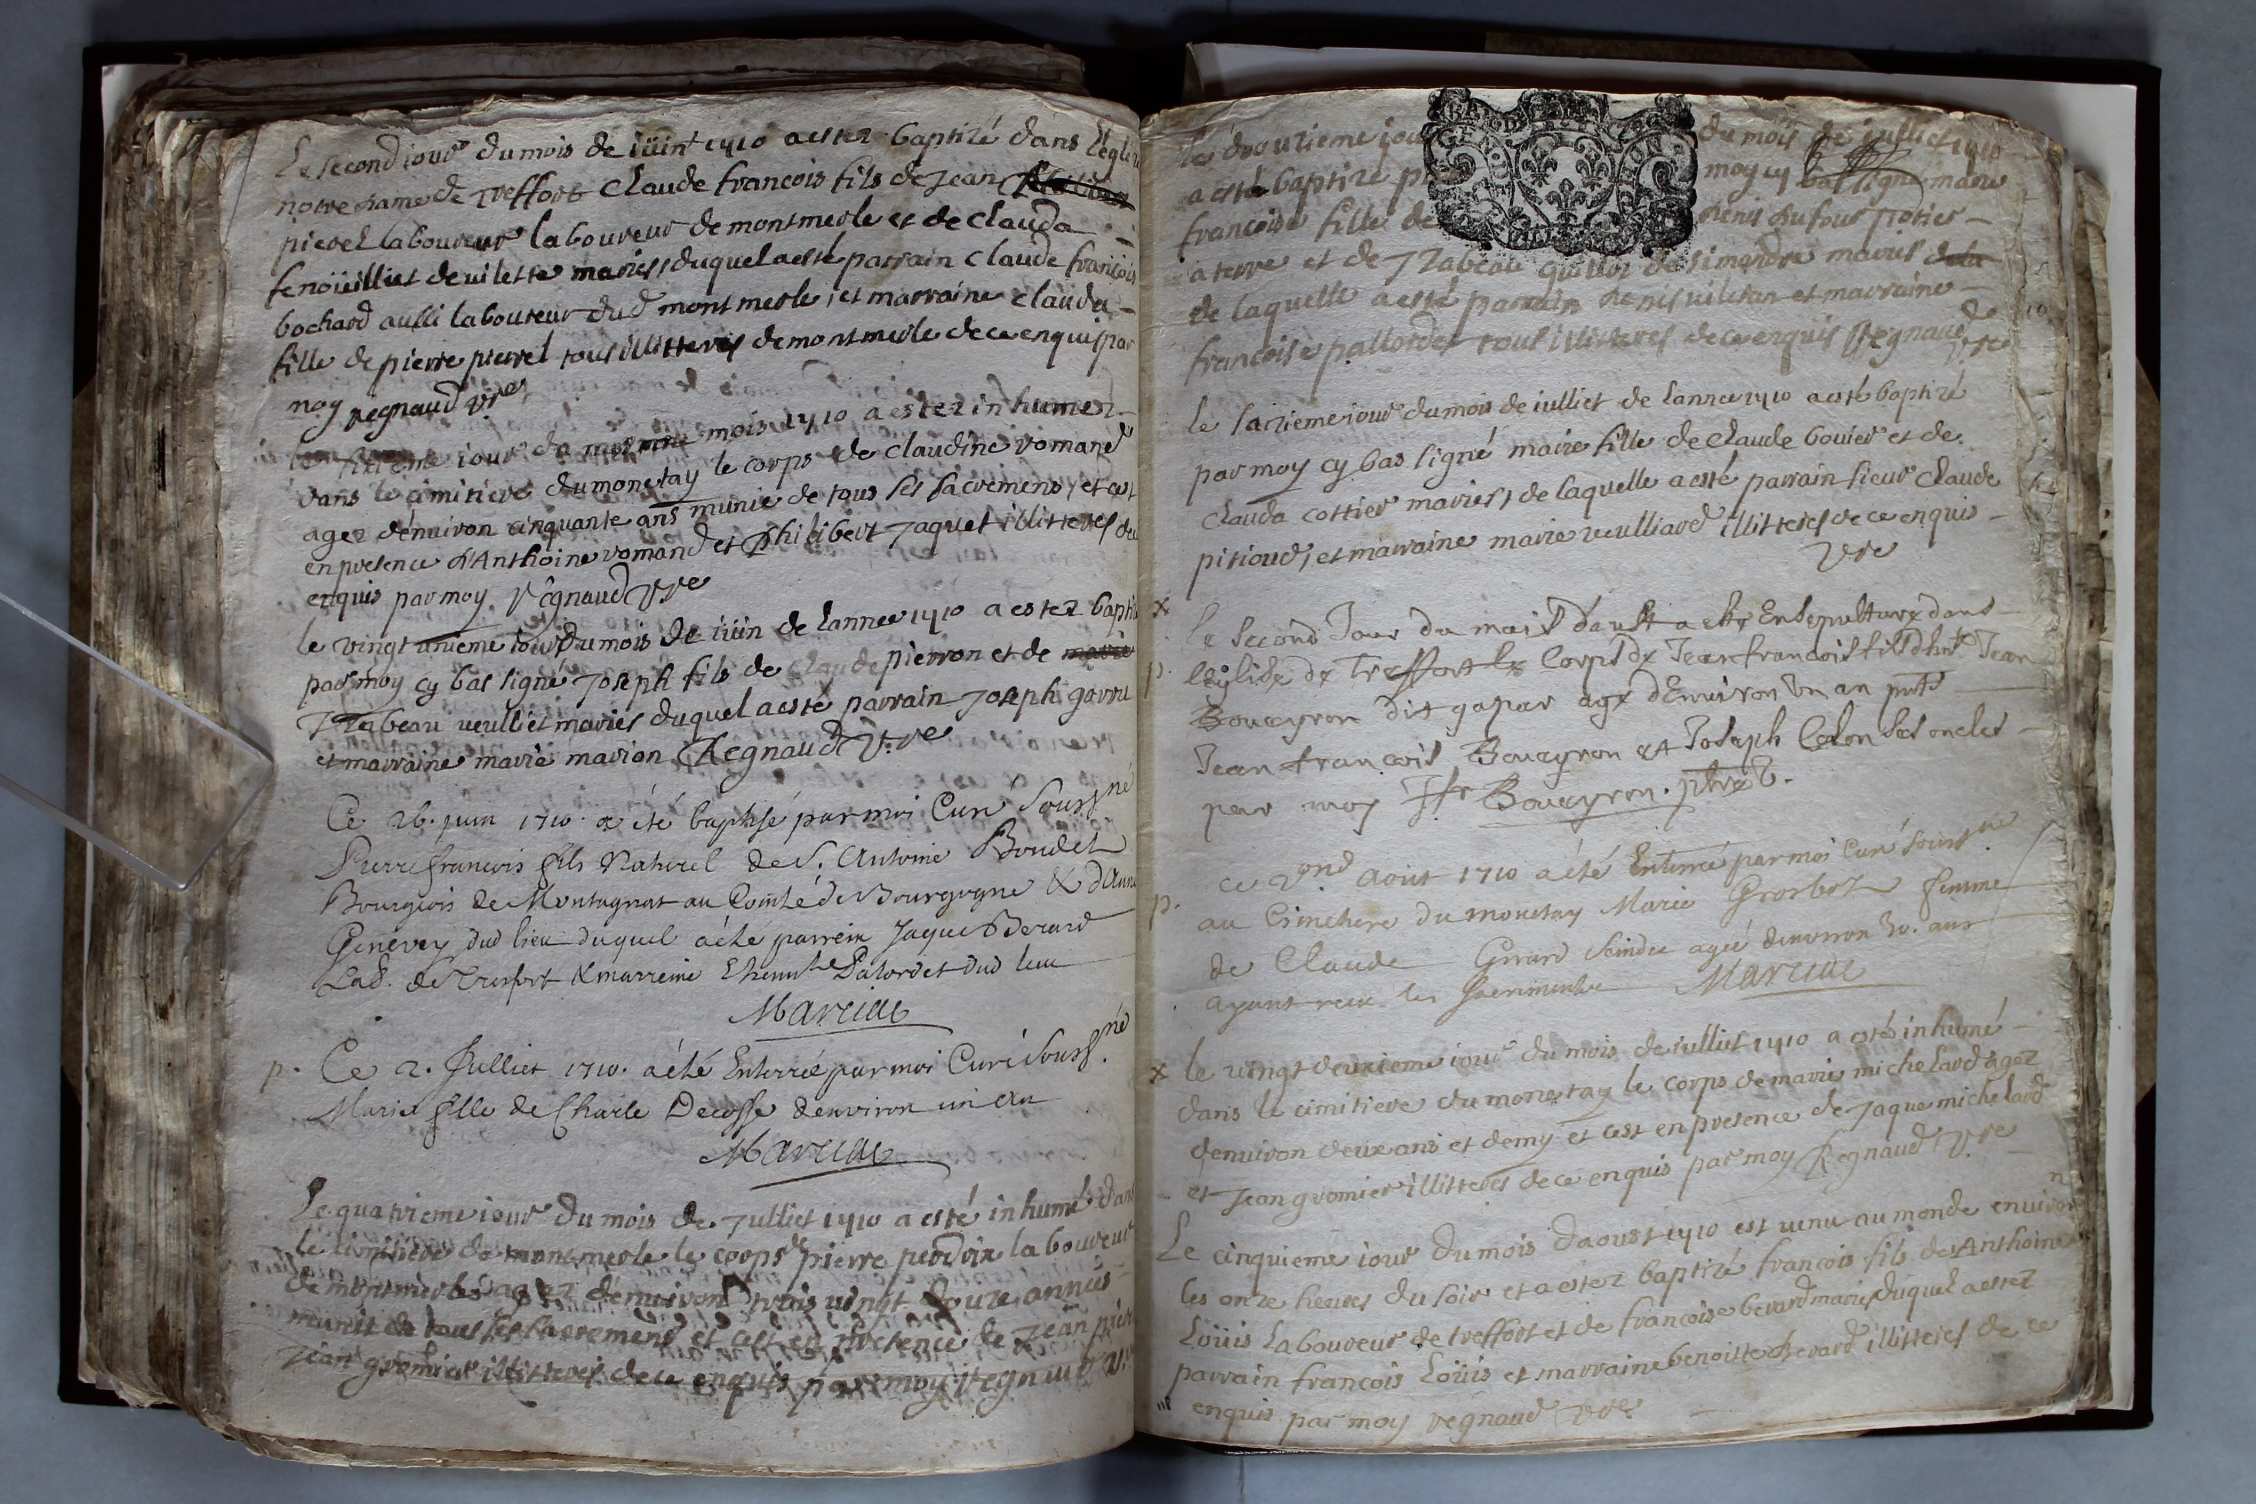 Le second jour du mois de iüint 1710 a estez baptizé dans l'églize
notre dame de Treffort Claude francois fils de Jean
pierel laboureur laboureur de montmerle et de Clauda
fenoüilliet de uilette mariers, duquel a esté parrain Claude francois
bochard aussi laboureur dud montmerle, et marraine clauda
fille de pierre pierrel tous illitteres de montmerle de ce enquis par
moy regnaud vre
le sixieme iour du mesme mois 1710 a estez inhumez
dans le cimitiere du monetay le corps de claudine romand
agez dénuiron cinquante ans munie de tous ses sacremens, et cest
en presence d'Anthoine romand et philibert Jaquet illitteres de ce
enquis par moy Régnaud vre
le vingt unieme iour du mois de iüin de lannee 1710 a estez baptiz
par moy cy bas signe Joseph fils de Claude pierron et de marie
Izabeau ueulliet mariés duquel a esté parrain Joseph
et marraine marie marion Regnaud vre
Ce 26. juin 1710. a été baptisé par moi Curé souss.né
Pierre francois fils Naturel de S. Antoine Boudet
Bourgeois de Montagnat au Comté de Bourgogne & d'Anne
Genevey dud lieu duquel a été parrein Jaque Berard
Lab. de Treffort & marreine Palordet dud lieu
p. Ce 2. Julliet 1710. a été Enterrée par moi Curé souss.né
Marie fille de Charle Decosse denviron un an
Le quatrieme iour du mois de Julliet 1710 a esté inhumé dans
le cimitiere de montmerle le corps de pierre perdrix laboureur
de montmerle agez dénuiron trois uingt douze années
munit de tous ses sacremens et cest en presence de Jean
Jean gromier illitteres de ce enquis par moy Regnaud vre
le douzieme jour du mois de julliet 1710
a esté baptize par moy cy bas signe marie
francoise fille de denis dufour potier
a terre et de Izabeau de simandre mariés de la
de laquelle a esté parrain denis uilletan et marraine
francoise pallordet tous illitteres de ce enquis Regnaud vre
le saizieme iour du mois de iulliet de lannee 1710 a esté baptizé
par moy cy bas signé marie fille de Claude bouier et de
Clauda cottier mariers, de laquelle a esté parrain sieur Claude
pitioud, et marraine marie ueulliard illitteres de ce enquis
vre
x le second Jour du mois daust a este Ensepulture dans
p. leglise de Treffort le Corps de Jean francois fils dhte Jean
Boueyron dit gapar age dEnuiron Un an pnts
Jean francois Boueyron et Joseph Colon ses oncles
par moy Boueyron. pbre V.
ce 2ond aout 1710 a été Enterrée par moi Curé souss.né
p. au Cimetiere du monetay Marie Grosbot femme
de Claude Girard Scindic agée denviron 30. ans
ayant receu les sacrements
x le vingt deuxieme iour du mois de iulliet 1710 a esté inhumé
dans le cimitiere du monestay le corps de marie michelard agez
denuiron deux ans et demy et cest en presence de Jaque michelard
et Jean gromier illitteres de ce enquis par moy Regnaud vre
Le cinquieme iour du mois daoust 1710 est uenu au monde enuiron
les onze heures du soir et a estez baptizé francois fils de Anthoine
Loüis Laboureur de treffort et de francoise berard mariés duquel a estez
parrain francois Loüis et marraine benoitte Berard illitteres de ce
enquis par moy regnaud vre